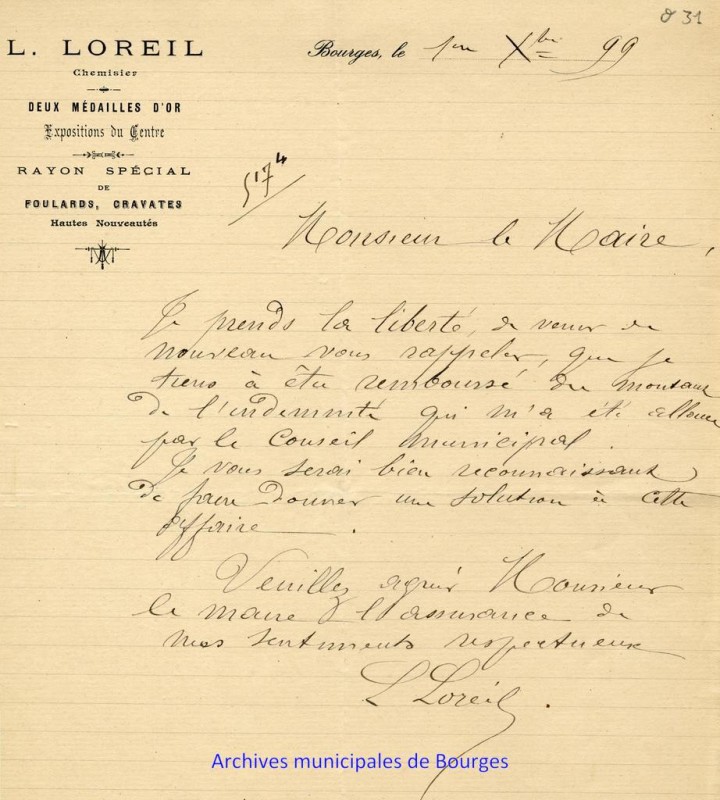 8 31
L. LOREIL
Chemisier
DEUX MÉDAILLES D'OR
Expositions du Centre
RAYON SPÉCIAL
DE
FOULARDS, CRAVATES
Hautes Nouveautés
Bourges, le 1er Xbre 99
5174
Monsieur le Maire,
Je prends la liberté, de venir de
nouveau vous rappeler, que je
tiens à être remboursé du montant
de l'indemnité qui m'a été allouée
par le Conseil Municipal.
Je vous serai bien reconnaissant
de faire donner une solution à cette
affaire.
Veuillez agréer Monsieur
le maire l'assurance de
mes sentiments respectueux
L Loreil.
Archives municipales de Bourges